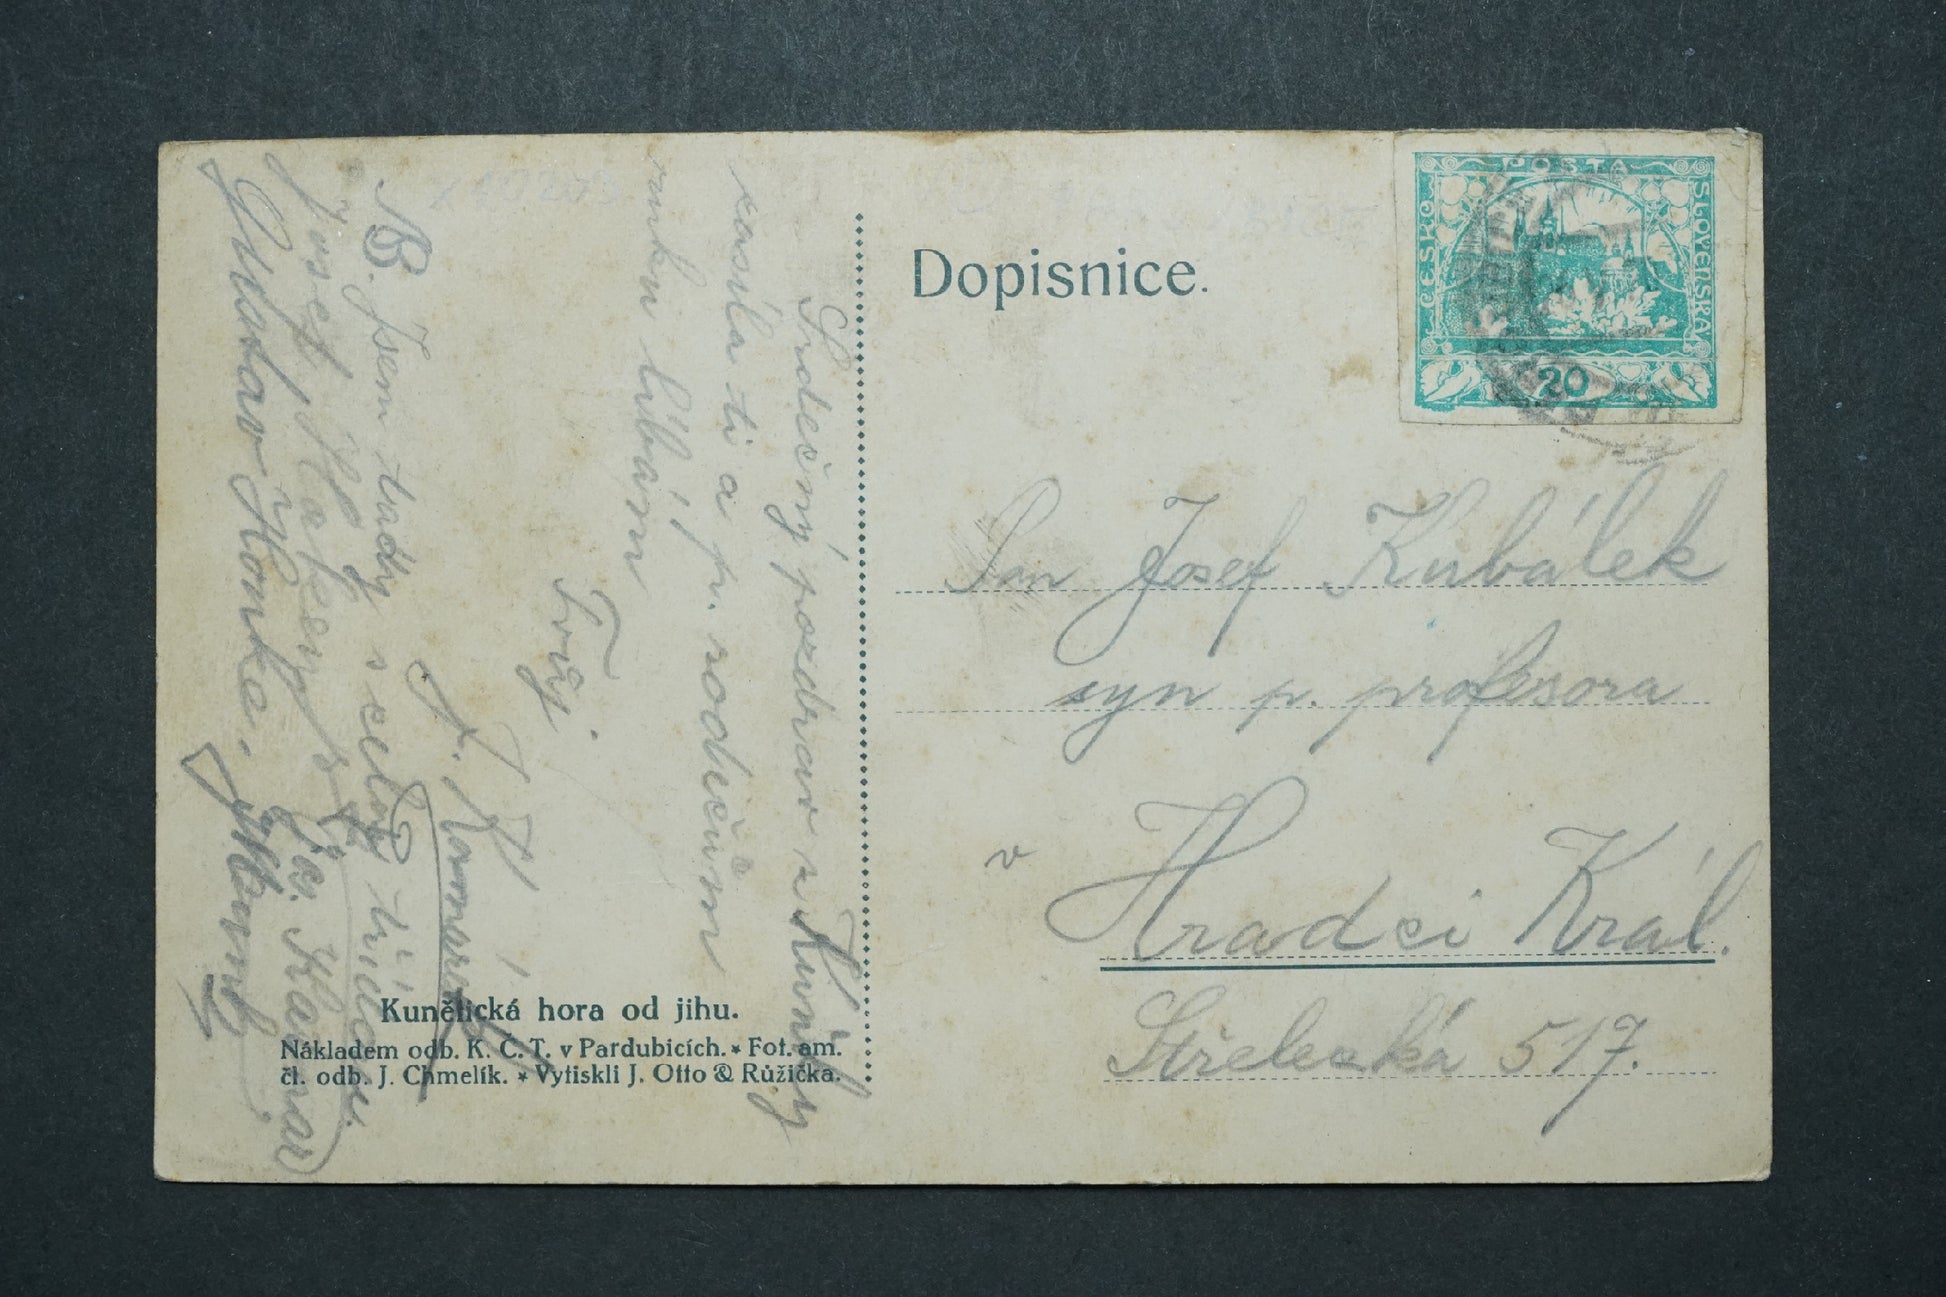 Dopisnice.
POŠTA
ČESKO
SLOVENSKÁ
20
Pan Josef Kubálek
syn p. profesora
v Hradci Král.
Střelecká 517.
Srdečný pozdrav z Kunětický
zasílá ti a p. rodičům
ruku líbám
Tvůj
F. Komárek
NB. Jsem tady s celou třídou.
Josef
Gustav Honke.
Kunětická hora od jihu.
Nákladem odb. K. Č. T. v Pardubicích. * Fot. am.
čl. odb. J. Chmelík. * Vytiskli J. Otto & Růžička.